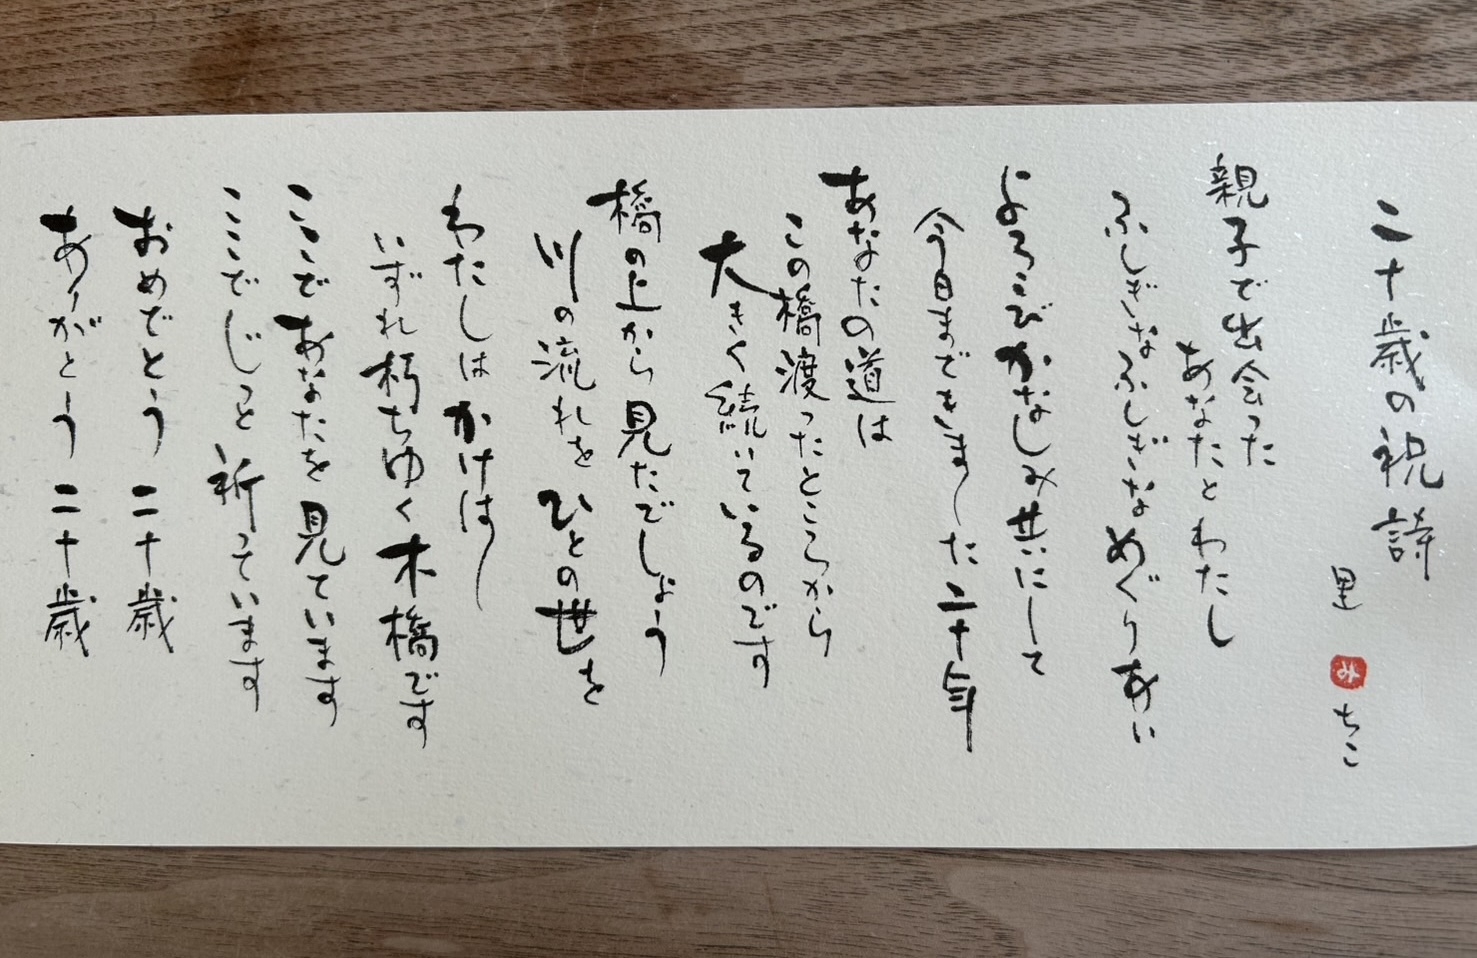 二十歳の祝詩
里 みちこ
親子で出会った
あなたとわたし
ふしぎなふしぎなめぐりあい
よろこびかなしみ共にして
今日まできました二十年
あなたの道は
この橋渡ったところから
大きく続いているのです
橋の上から見たでしょう
川の流れをひとの世を
わたしはかけはし
いずれ朽ちゆく木橋です
ここであなたを見ています
ここでじっと祈っています
おめでとう 二十歳
ありがとう 二十歳